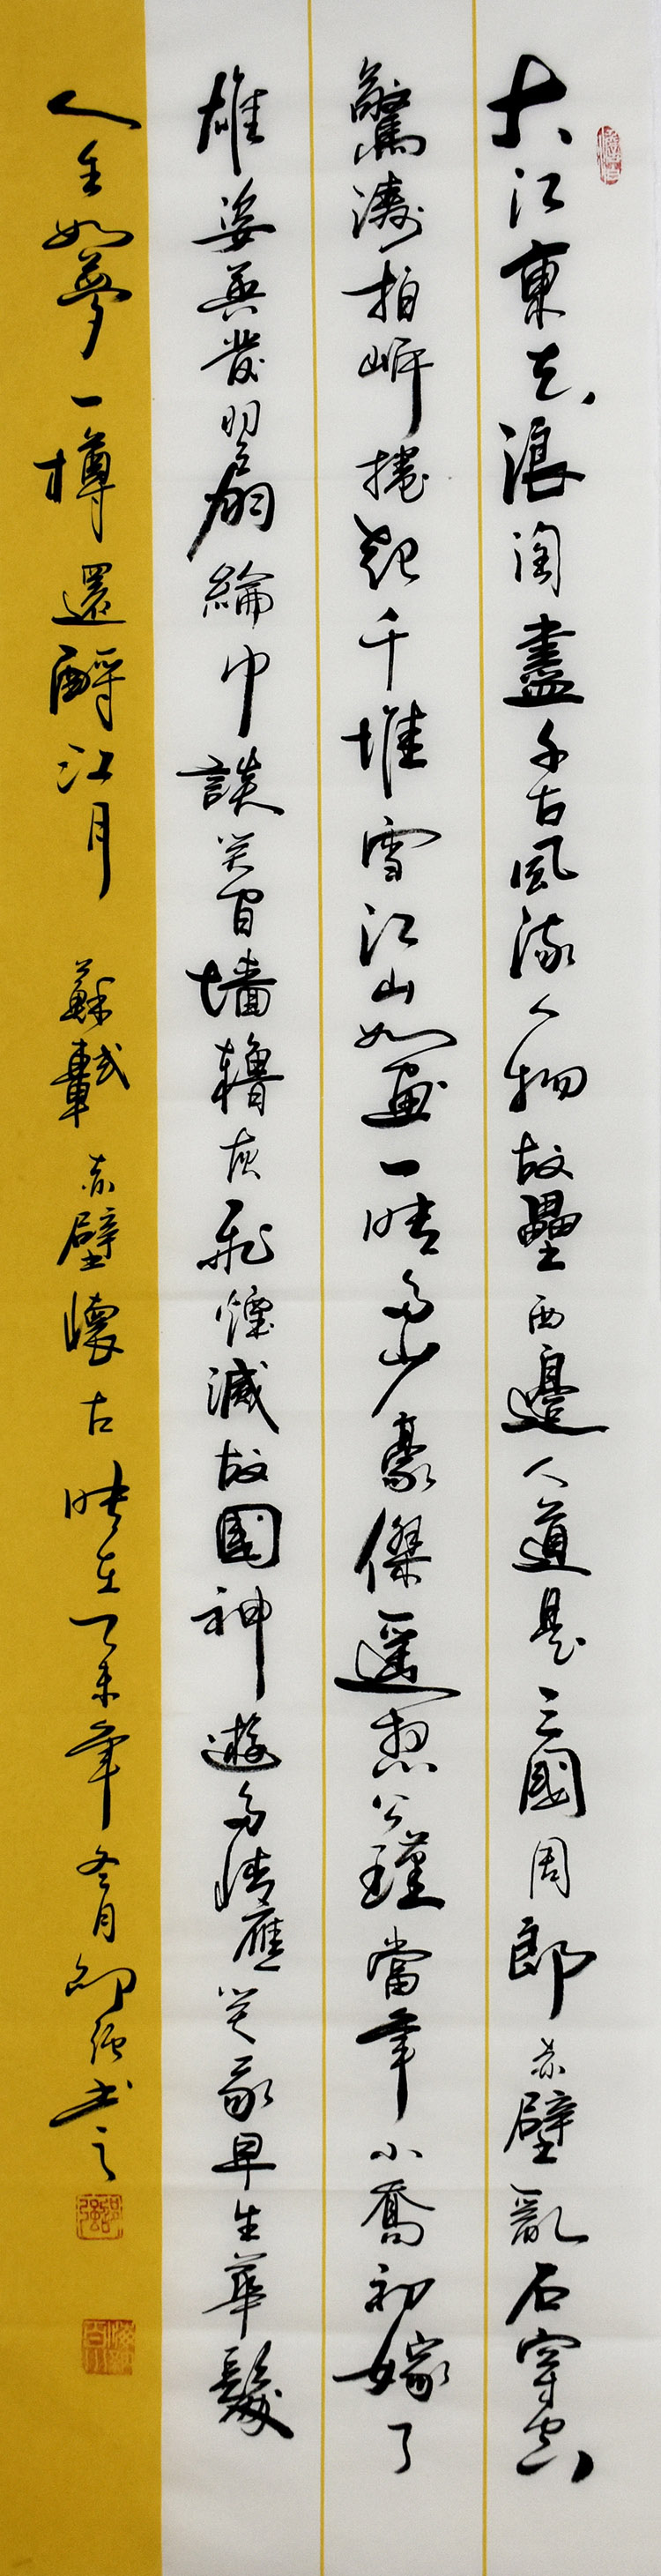 大江東去浪淘盡千古風流人物故壘西邊人道是三國周郎赤壁亂石穿空
驚濤拍岸捲起千堆雪江山如畫一時多少豪傑遙想公瑾當年小喬初嫁了
雄姿英發羽扇綸巾談笑間墻櫓灰飛煙滅故國神遊多情應笑我早生華髮
人生如夢一樽還酹江月 蘇軾 赤壁懷古 時在乙未年冬月邵強書之
邵強